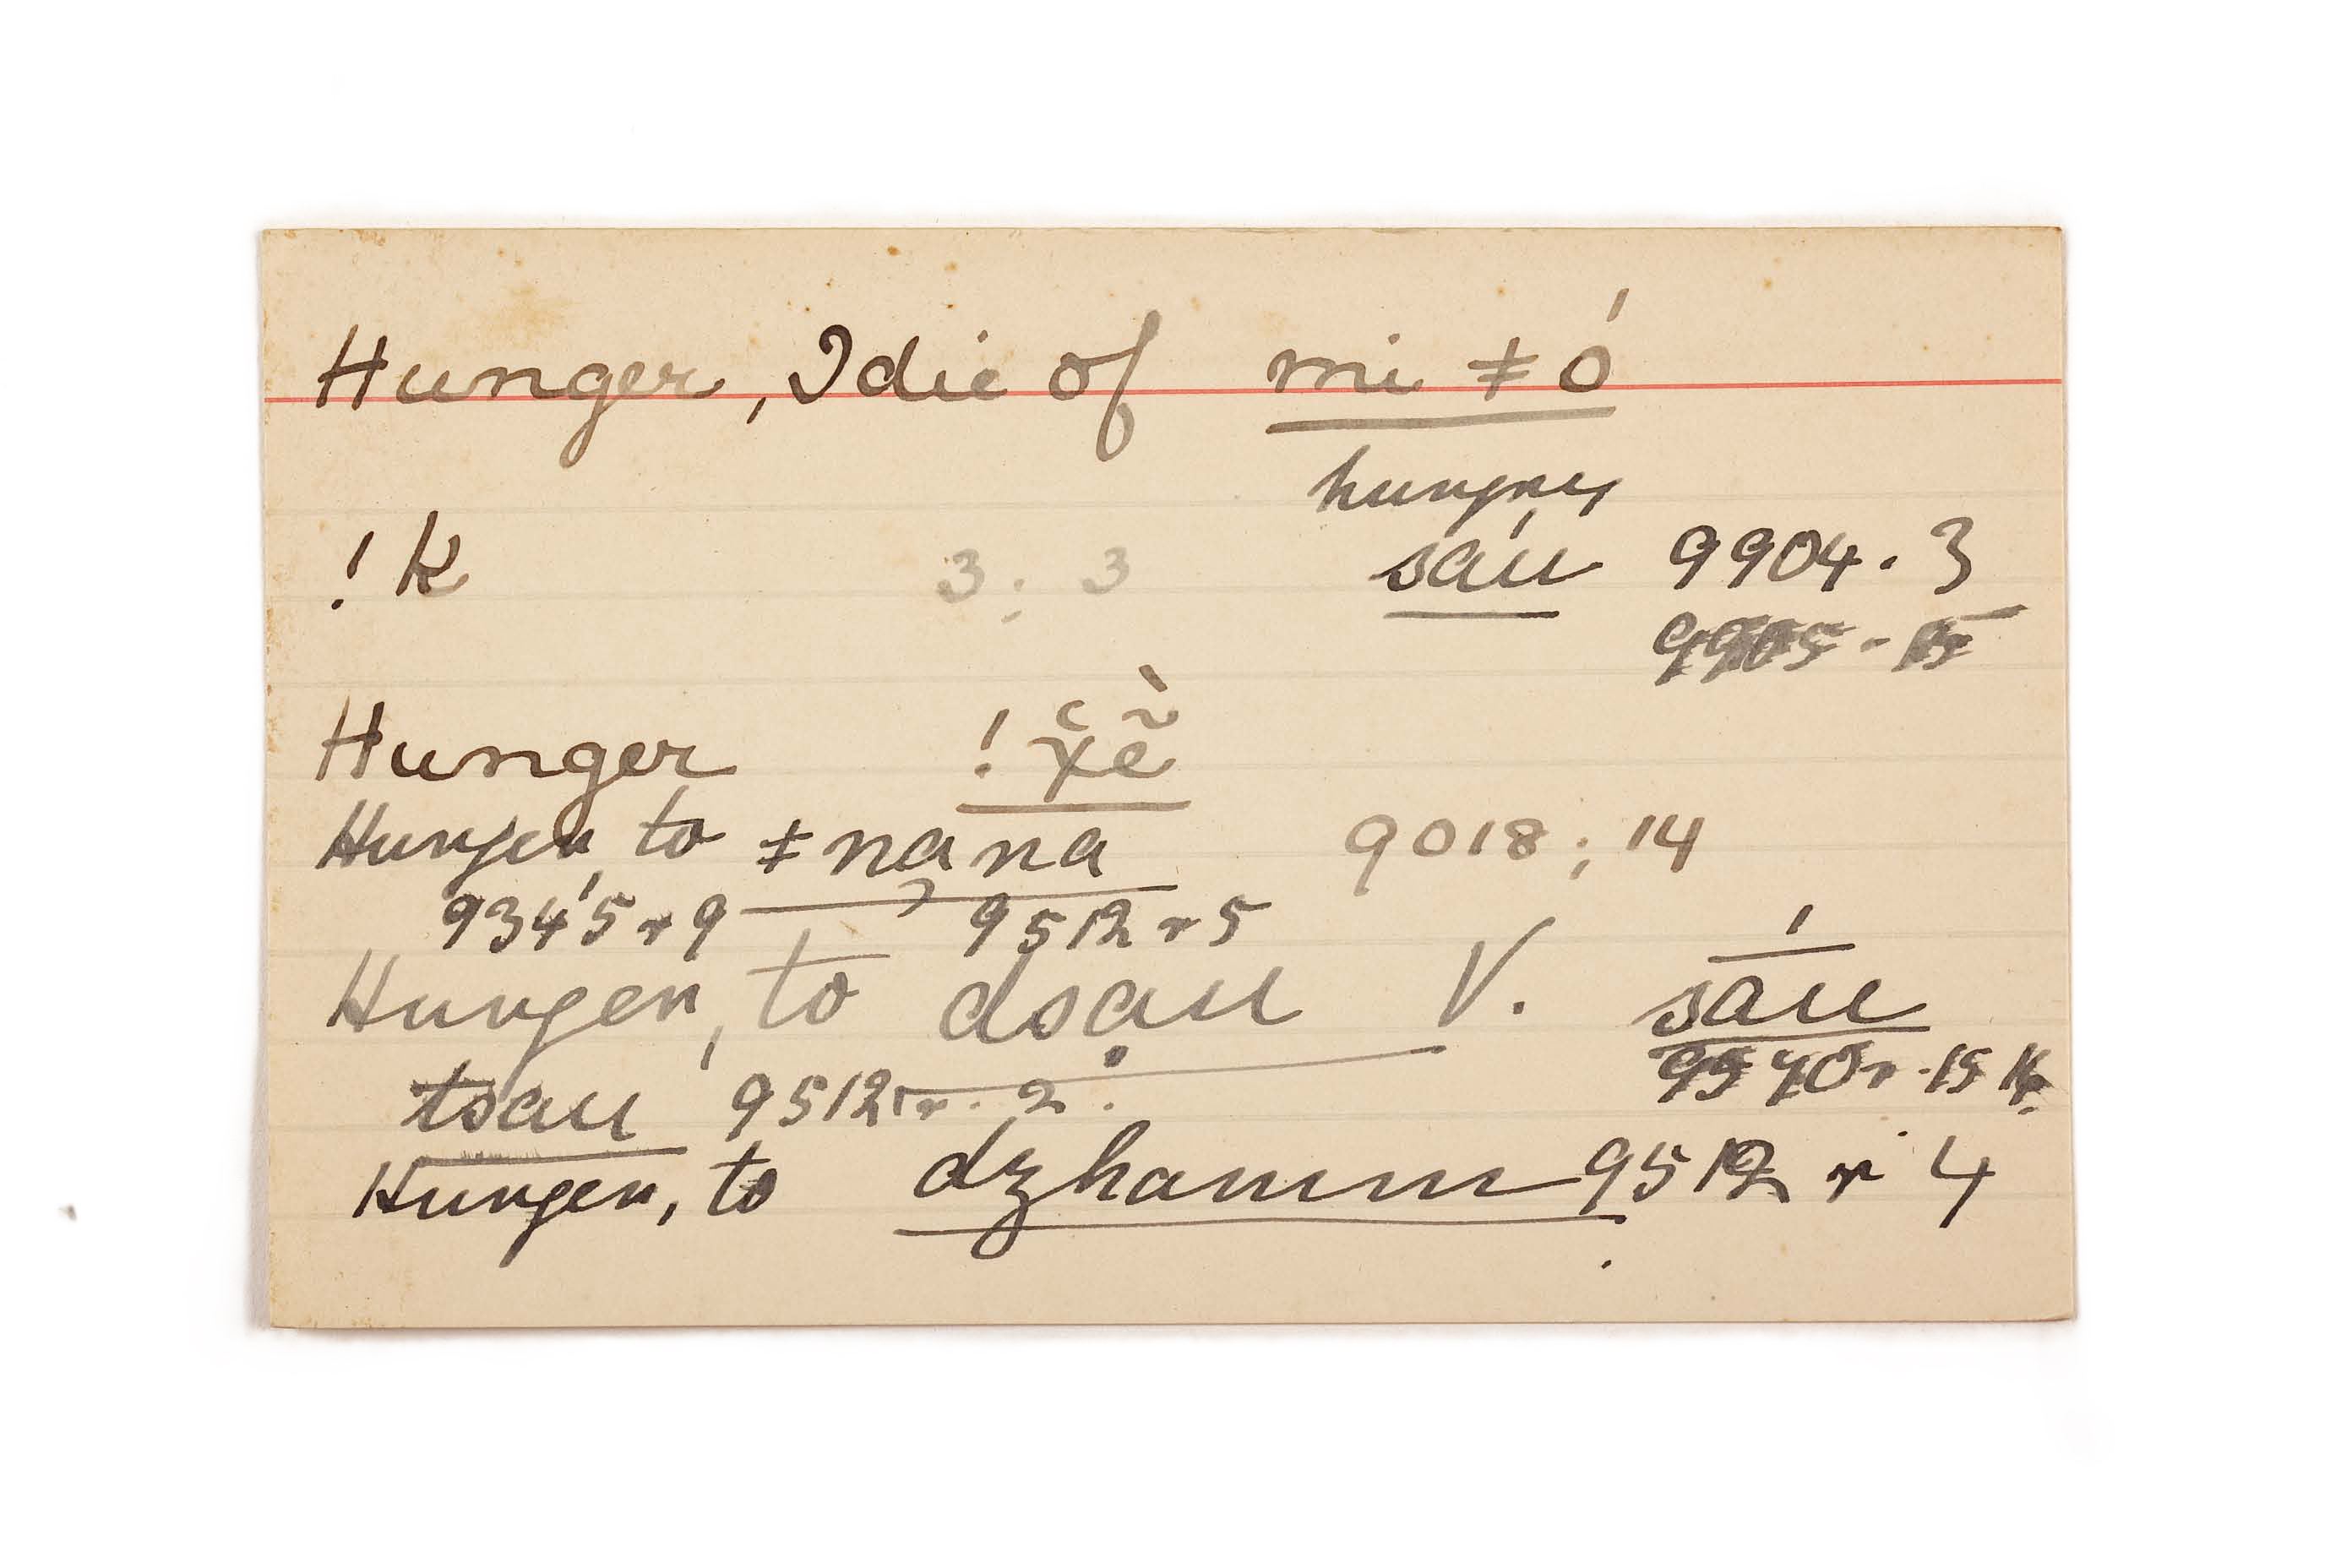 Hunger, I die of mi ǂ ó
hungry
! k 3 ; 3 sáu 9904 . 3
Hunger ! χ̆ẽ̀
Hunger, to ǂ nana 9018 ; 14
9345 r 9 9512 r 5
Hunger, to dsạu V. sā́u
tsau 9512 r. 2.
Hunger, to dzhamm 9512 r 4